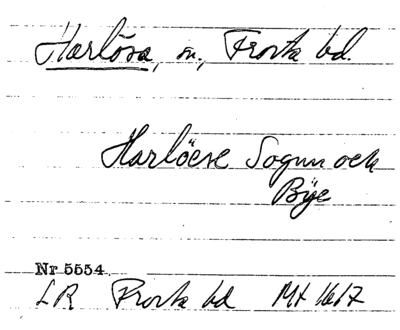 Harlösa, sn., Frosta hd.
Harlöese Sognn och
Bÿe
Nr 5554
LR Frosta hd Mt 1617